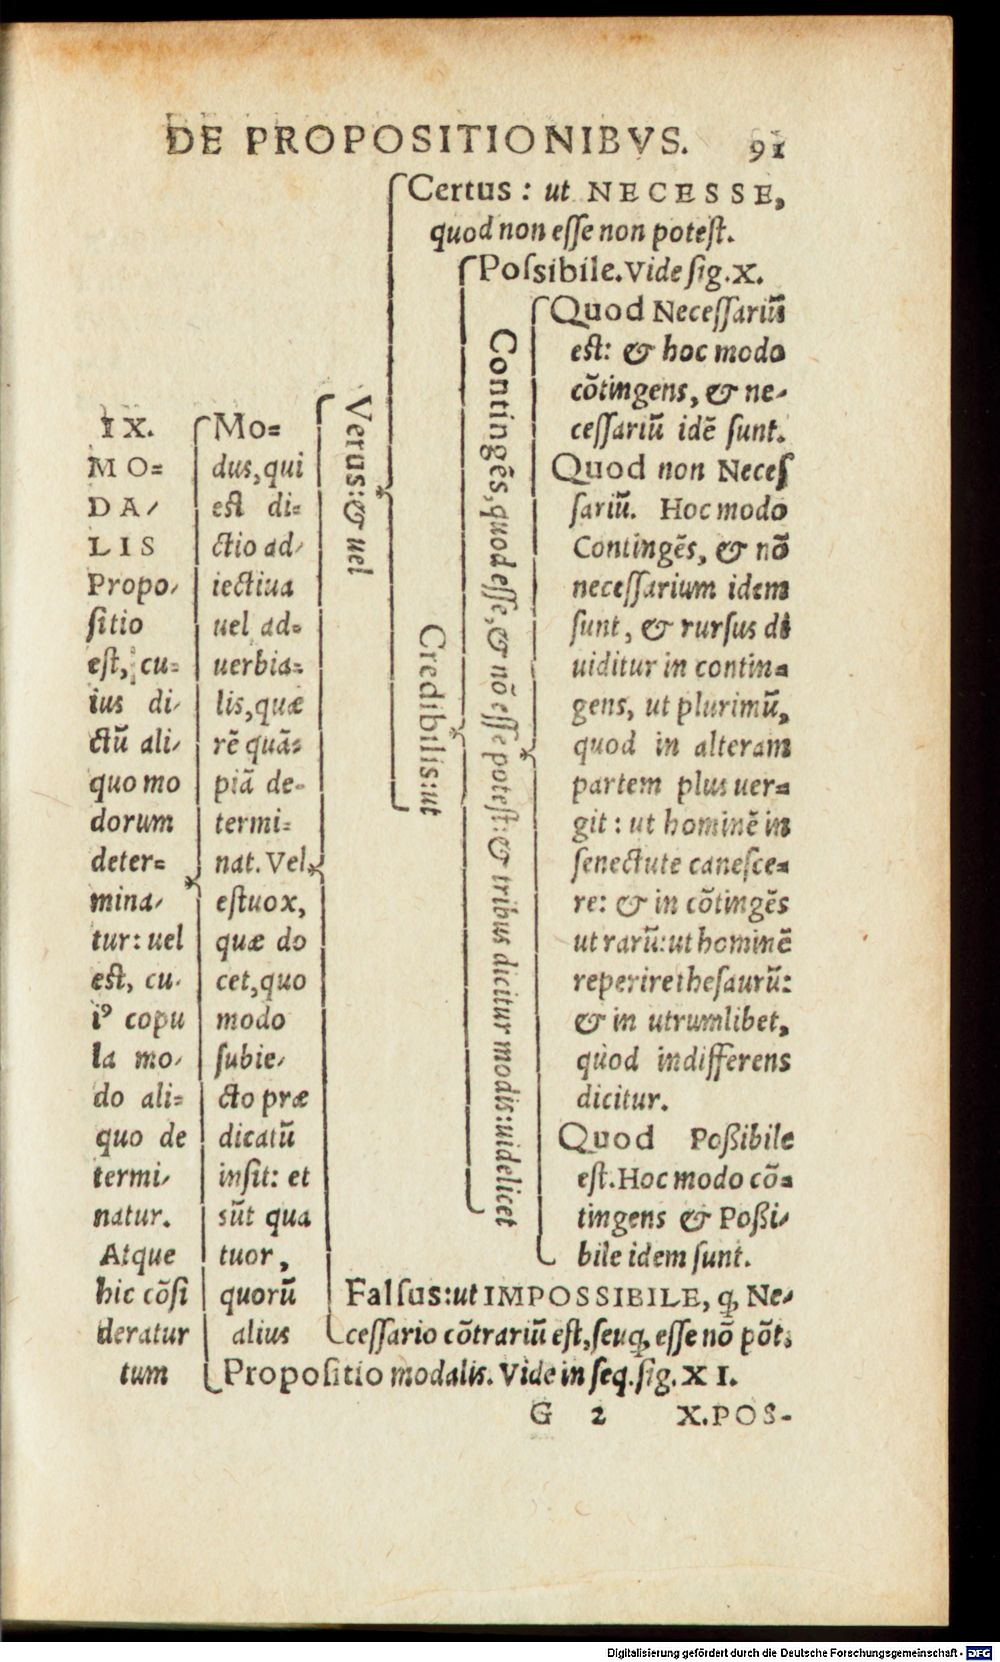 DE PROPOSITIONIBVS. 91
IX.
MO=
DA/
LIS
Propo/
sitio
est, cu=
ius di/
ctũ ali/
quo mo
dorum
deter=
mina/
tur: uel
est, cu/
iꝰ copu
la mo/
do ali=
quo de
termi/
natur.
Atque
hic cõsi
deratur
tum
Mo=
dus, qui
est di=
ctio ad/
iectiua
uel ad=
uerbia=
lis, quæ
rẽ quã=
piã de=
termi=
nat. Vel
est uox,
quæ do
cet, quo
modo
subie/
cto præ
dicatũ
insit: et
sũt qua
tuor,
quorũ
alius
Verus: & uel
Certus: ut NECESSE,
quod non esse non potest.
Credibilis: ut
Possibile. Vide sig. X.
Contingẽs, quod esse, & nõ esse potest: & tribus dicitur modis: uidelicet
Quod Necessariũ
est: & hoc modo
cõtingens, & ne/
cessariũ idẽ sunt.
Quod non Neces
sariũ. Hoc modo
Contingẽs, & nõ
necessarium idem
sunt, & rursus di
uiditur in contin=
gens, ut plurimũ,
quod in alteram
partem plus uer=
git: ut hominẽ in
senectute canesce=
re: & in cõtingẽs
ut rarũ: ut hominẽ
reperire thesaurũ:
& in utrumlibet,
quod indifferens
dicitur.
Quod Poßibile
est. Hoc modo cõ=
tingens & Poßi/
bile idem sunt.
Falsus: ut IMPOSSIBILE, q, Ne/
cessario cõtrariũ est, seuq, esse nõ põt.
Propositio modalis. Vide in seq. sig. XI.
G 2 X. POS-
Digitalisierung gefördert durch die Deutsche Forschungsgemeinschaft - DFG